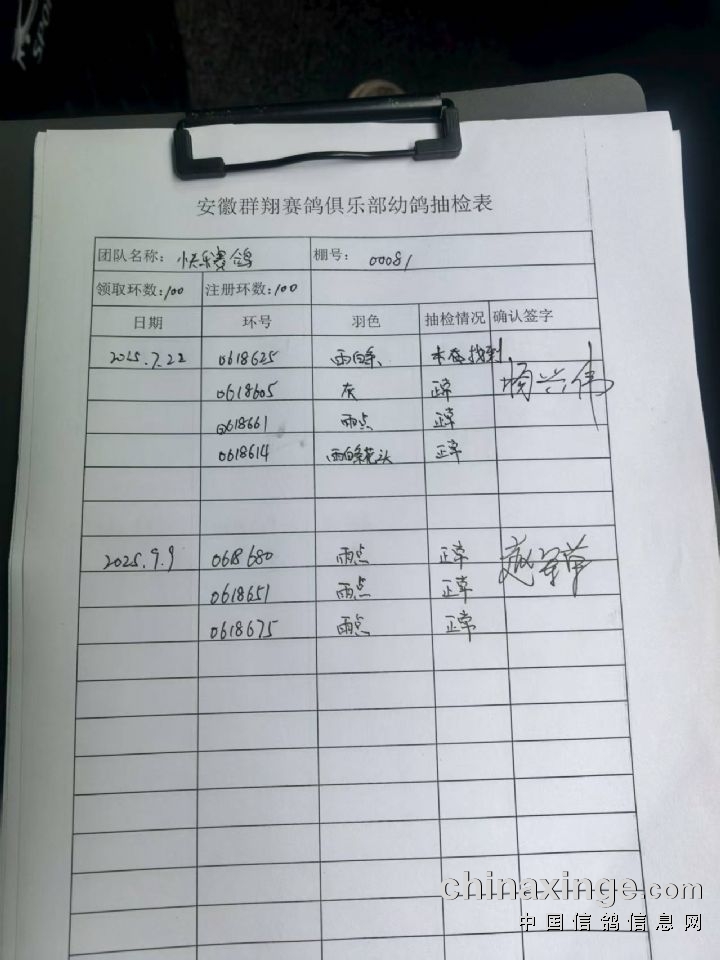 SPOR
安徽群翔赛鸽俱乐部幼鸽抽检表
团队名称: 快乐赛鸽 棚号: 00081
领取环数:100 注册环数:100
日期 环号 羽色 抽检情况 确认签字
2025.7.22 0618625 雨白条 未查找到
0618605 灰 正常
0618661 雨点 正常
0618614 雨白条花头 正常
2025.9.9 0618680 雨点 正常
0618651 雨点 正常
0618675 雨点 正常
chinaxinge.com
中国信鸽信息网